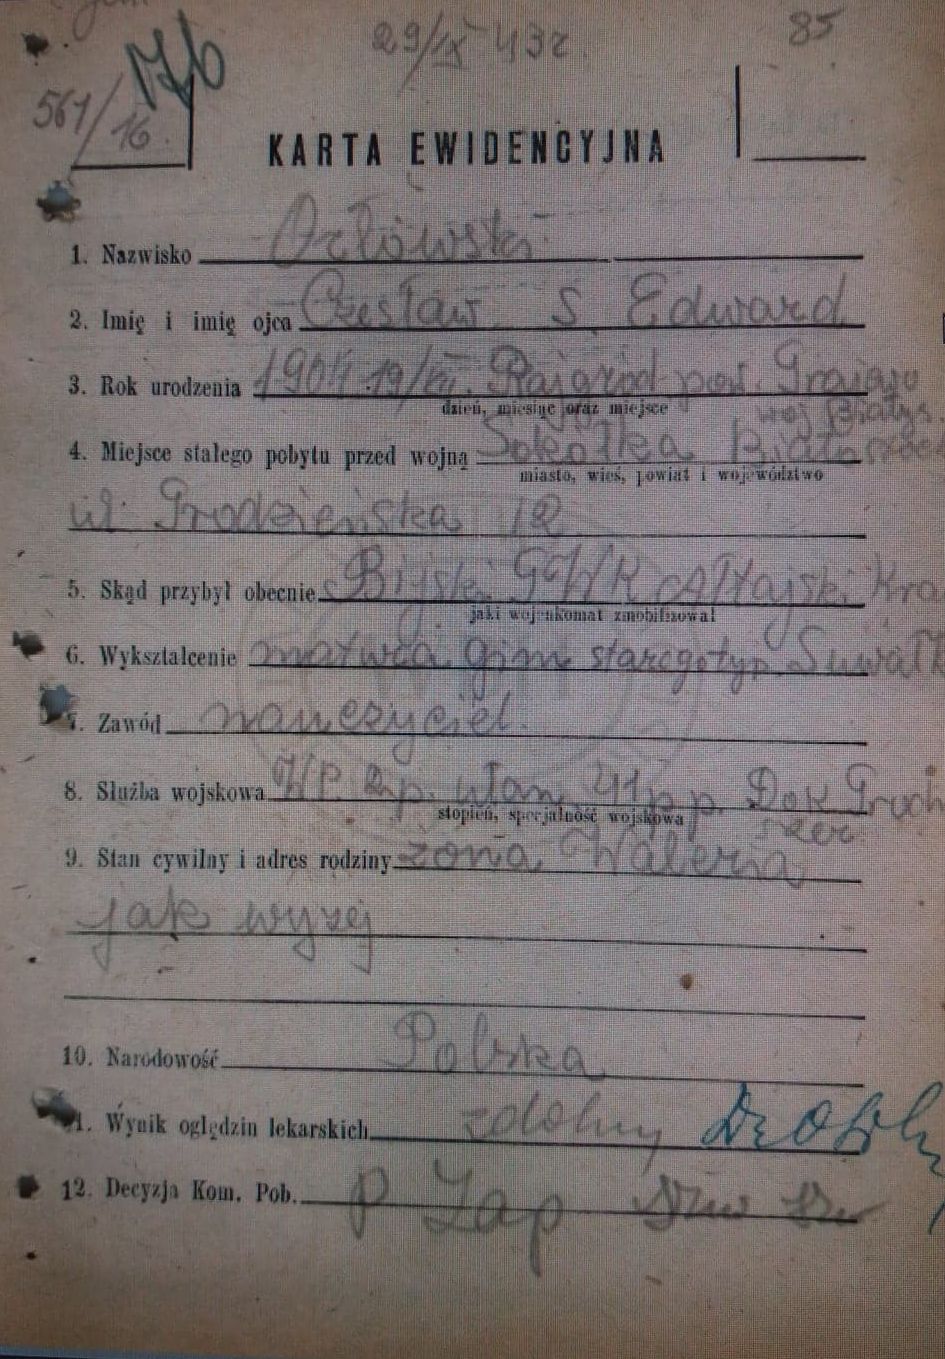 29/IX 43r. 85
17/b
561/16
KARTA EWIDENCYJNA
1. Nazwisko Orłowski
2. Imię i imię ojca Czesław s. Edward
3. Rok urodzenia 1904 19/VII. Rajgród pow. Grajewo
dzień, miesiąc oraz miejsce woj Białys.
4. Miejsce stałego pobytu przed wojną Sokółka
miasto, wieś, powiat i województwo
ul. Grodzieńska 12
5. Skąd przybył obecnie Bijski GWK Ałtajski Kra
jaki wojenkomat zmobilizował
6. Wykształcenie matura gim. starego typ. Suwałk
7. Zawód nauczyciel.
8. Służba wojskowa WP. 2 p. ułan. 41 p.p.
stopień, specjalność wojskowa szer.
9. Stan cywilny i adres rodziny żona Waleria
jak wyzej
10. Narodowość Polska
11. Wynik oględzin lekarskich zdolny
12. Decyzja Kom. Pob. p Zap